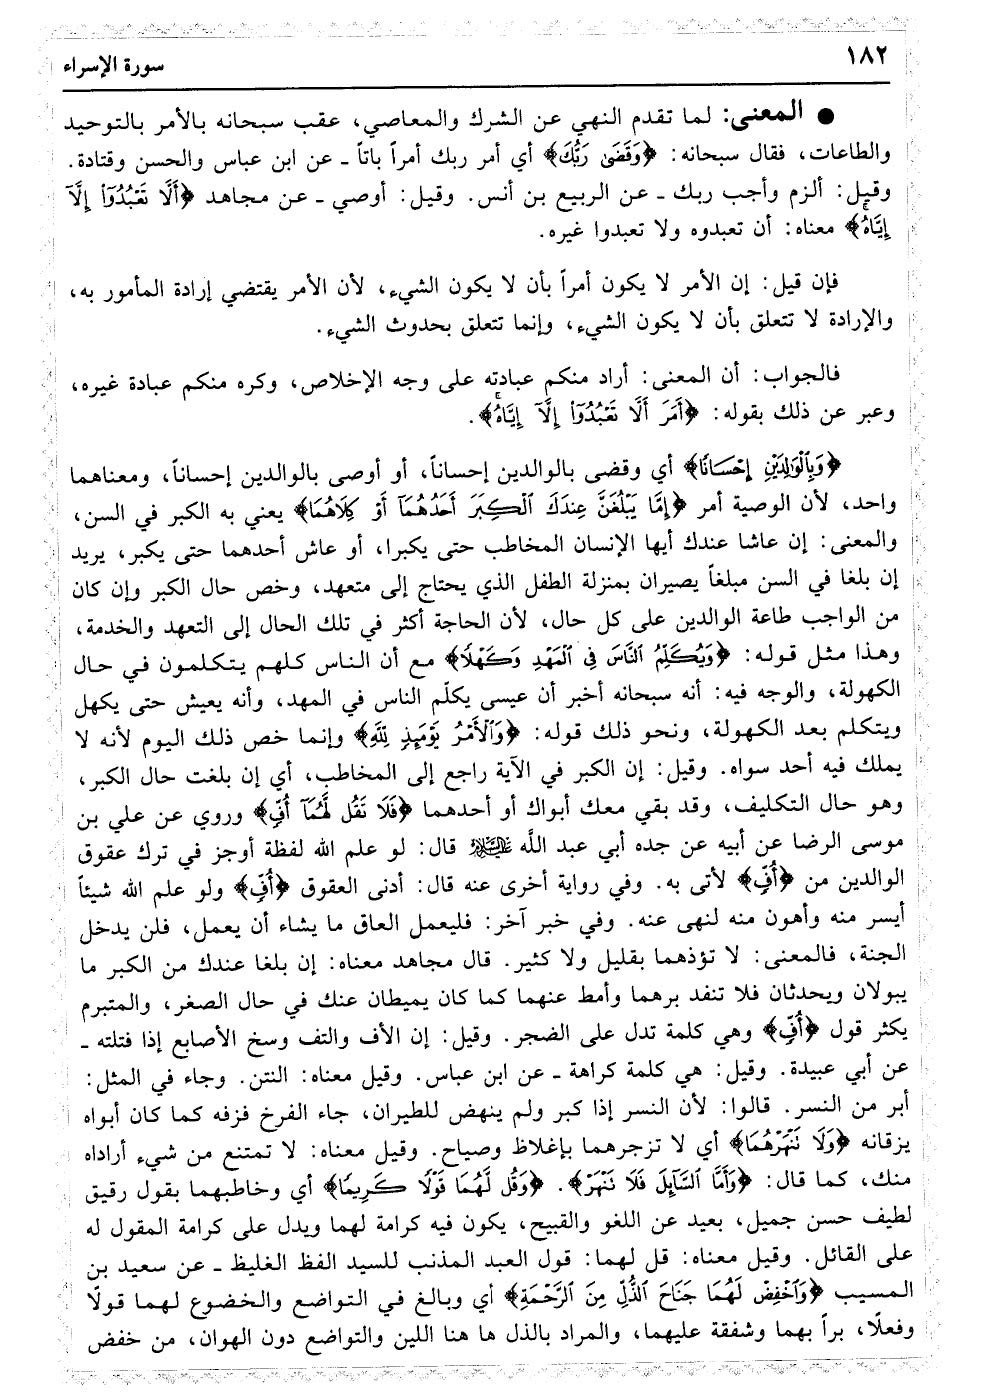 ١٨٢
سورة الإسراء
● المعنى: لما تقدم النهي عن الشرك والمعاصي، عقب سبحانه بالأمر بالتوحيد
والطاعات، فقال سبحانه: ﴿وَقَضَىٰ رَبُّكَ﴾ أي أمر ربك أمراً باتاً ـ عن ابن عباس والحسن وقتادة.
وقيل: ألزم وأجب ربك ـ عن الربيع بن أنس. وقيل: أوصي ـ عن مجاهد ﴿أَلَّا تَعْبُدُوٓاْ إِلَّآ
إِيَّاهُ﴾ معناه: أن تعبدوه ولا تعبدوا غيره.
فإن قيل: إن الأمر لا يكون أمراً بأن لا يكون الشيء، لأن الأمر يقتضي إرادة المأمور به،
والإرادة لا تتعلق بأن لا يكون الشيء، وإنما تتعلق بحدوث الشيء.
فالجواب: أن المعنى: أراد منكم عبادته على وجه الإخلاص، وكره منكم عبادة غيره،
وعبر عن ذلك بقوله: ﴿أَمَرَ أَلَّا تَعْبُدُوٓاْ إِلَّآ إِيَّاهُ﴾.
﴿وَبِٱلْوَٰلِدَيْنِ إِحْسَـٰنًا﴾ أي وقضى بالوالدين إحساناً، أو أوصى بالوالدين إحساناً، ومعناهما
واحد، لأن الوصية أمر ﴿إِمَّا يَبْلُغَنَّ عِندَكَ ٱلْكِبَرَ أَحَدُهُمَآ أَوْ كِلَاهُمَا﴾ يعني به الكبر في السن،
والمعنى: إن عاشا عندك أيها الإنسان المخاطب حتى يكبرا، أو عاش أحدهما حتى يكبر، يريد
إن بلغا في السن مبلغاً يصيران بمنزلة الطفل الذي يحتاج إلى متعهد، وخص حال الكبر وإن كان
من الواجب طاعة الوالدين على كل حال، لأن الحاجة أكثر في تلك الحال إلى التعهد والخدمة،
وهذا مثل قوله: ﴿وَيُكَلِّمُ ٱلنَّاسَ فِي ٱلْمَهْدِ وَكَهْلًا﴾ مع أن الناس كلهم يتكلمون في حال
الكهولة، والوجه فيه: أنه سبحانه أخبر أن عيسى يكلّم الناس في المهد، وأنه يعيش حتى يكهل
ويتكلم بعد الكهولة، ونحو ذلك قوله: ﴿وَٱلْأَمْرُ يَوْمَئِذٍ لِلَّهِ﴾ وإنما خص ذلك اليوم لأنه لا
يملك فيه أحد سواه. وقيل: إن الكبر في الآية راجع إلى المخاطب، أي إن بلغت حال الكبر،
وهو حال التكليف، وقد بقي معك أبواك أو أحدهما ﴿فَلَا تَقُل لَّهُمَآ أُفٍّ﴾ وروي عن علي بن
موسى الرضا عن أبيه عن جده أبي عبد اللَّه عليه السلام قال: لو علم الله لفظة أوجز في ترك عقوق
الوالدين من ﴿أُفٍّ﴾ لأتى به. وفي رواية أخرى عنه قال: أدنى العقوق ﴿أُفٍّ﴾ ولو علم الله شيئاً
أيسر منه وأهون منه لنهى عنه. وفي خبر آخر: فليعمل العاق ما يشاء أن يعمل، فلن يدخل
الجنة، فالمعنى: لا تؤذهما بقليل ولا كثير. قال مجاهد معناه: إن بلغا عندك من الكبر ما
يبولان ويحدثان فلا تنفد برهما وأمط عنهما كما كان يميطان عنك في حال الصغر، والمتبرم
يكثر قول ﴿أُفٍّ﴾ وهي كلمة تدل على الضجر. وقيل: إن الأف والتف وسخ الأصابع إذا فتلته ـ
عن أبي عبيدة. وقيل: هي كلمة كراهة ـ عن ابن عباس. وقيل معناه: النتن. وجاء في المثل:
أبر من النسر. قالوا: لأن النسر إذا كبر ولم ينهض للطيران، جاء الفرخ فزفه كما كان أبواه
يزقانه ﴿وَلَا نَنْهَرْهُمَا﴾ أي لا تزجرهما بإغلاظ وصياح. وقيل معناه: لا تمتنع من شيء أراداه
منك، كما قال: ﴿وَأَمَّا ٱلسَّآئِلَ فَلَا نَنْهَرْ﴾. ﴿وَقُل لَّهُمَا قَوْلًا كَرِيمًا﴾ أي وخاطبهما بقول رقيق
لطيف حسن جميل، بعيد عن اللغو والقبيح، يكون فيه كرامة لهما ويدل على كرامة المقول له
على القائل. وقيل معناه: قل لهما: قول العبد المذنب للسيد الفظ الغليظ ـ عن سعيد بن
المسيب ﴿وَٱخْفِضْ لَهُمَا جَنَاحَ ٱلذُّلِّ مِنَ ٱلرَّحْمَةِ﴾ أي وبالغ في التواضع والخضوع لهما قولًا
وفعلًا، براً بهما وشفقة عليهما، والمراد بالذل ها هنا اللين والتواضع دون الهوان، من خفض